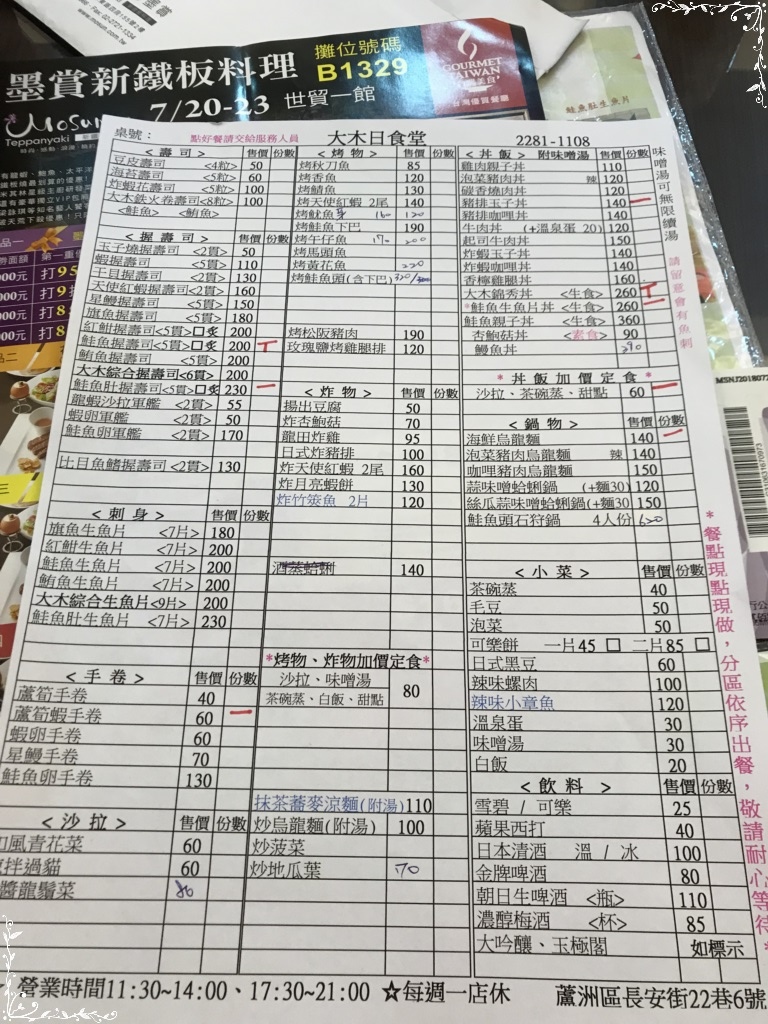 www.mosun.com.tw
墨賞新鐵板料理 攤位號碼 B1329
7/20-23 世貿一館
Mosun
Teppanyaki
GOURMET TAIWAN
台灣優質餐廳
鮭魚肚生魚片
MSNJ201807
桌號： 點好餐請交給服務人員 大木日食堂 2281-1108
<壽司> 售價 份數
豆皮壽司 <4粒> 50
海苔壽司 <5粒> 60
炸蝦花壽司 <5粒> 100
大木鐵火卷壽司<8粒> 100
<鮭魚> <鮪魚>
<握壽司> 售價 份數
玉子燒握壽司 <2貫> 50
蝦握壽司 <5貫> 110
干貝握壽司 <2貫> 130
天使紅蝦握壽司<2貫> 160
星鰻握壽司 <5貫> 150
旗魚握壽司 <5貫> 180
紅魽握壽司<5貫>□炙 200
鮭魚握壽司<5貫>□炙 200
鮪魚握壽司 <5貫> 200
大木綜合握壽司<6貫> 200
鮭魚肚握壽司<5貫>□炙 230
龍蝦沙拉軍艦 <2貫> 55
蝦卵軍艦 <2貫> 50
鮭魚卵軍艦 <2貫> 170
比目魚鰭握壽司<2貫> 130
<刺身> 售價 份數
旗魚生魚片 <7片> 180
紅魽生魚片 <7片> 200
鮭魚生魚片 <7片> 200
鮪魚生魚片 <7片> 200
大木綜合生魚片<9片> 200
鮭魚肚生魚片 <7片> 230
<手卷> 售價 份數
蘆筍手卷 40
蘆筍蝦手卷 60
蝦卵手卷 60
星鰻手卷 70
鮭魚卵手卷 130
<沙拉> 售價 份數
和風青花菜 60
涼拌過貓 60
醬龍鬚菜 80
<烤物> 售價 份數
烤秋刀魚 85
烤香魚 120
烤鯖魚 130
烤天使紅蝦 2尾 140
烤魷魚 160 120
烤鮭魚下巴 190
烤午仔魚 170 200
烤馬頭魚
烤黃花魚 220
烤鮭魚頭(含下巴) 320
烤松阪豬肉 190
玫瑰鹽烤雞腿排 120
<炸物> 售價 份數
揚出豆腐 50
炸杏鮑菇 70
龍田炸雞 95
日式炸豬排 100
炸天使紅蝦 2尾 160
炸月亮蝦餅 130
炸竹筴魚 2片 120
酒蒸蛤蜊 140
*烤物、炸物加價定食*
沙拉、味噌湯
茶碗蒸、白飯、甜點 80
抹茶蕎麥涼麵(附湯) 110
炒烏龍麵(附湯) 100
炒菠菜
炒地瓜葉 70
<丼飯> 附味噌湯 售價 份數
雞肉親子丼 110
泡菜豬肉丼 辣 120
碳香燒肉丼 120
豬排玉子丼 140
豬排咖哩丼 140
牛肉丼 (+溫泉蛋 20) 120
起司牛肉丼 150
炸蝦玉子丼 140
炸蝦咖哩丼 140
香檸雞腿丼 160
大木錦秀丼 <生食> 260
*鮭魚生魚片丼 <生食> 260
鮭魚親子丼 <生食> 360
杏鮑菇丼 <素食> 90
鰻魚丼 290
味噌湯可無限續湯
請留意會有魚刺
*丼飯加價定食*
沙拉、茶碗蒸、甜點 60
<鍋物> 售價 份數
海鮮烏龍麵 140
泡菜豬肉烏龍麵 辣 140
咖哩豬肉烏龍麵 150
蒜味噌蛤蜊鍋 (+麵30) 120
絲瓜味噌蛤蜊鍋(+麵30) 150
鮭魚頭石狩鍋 4人份 620
<小菜> 售價 份數
茶碗蒸 40
毛豆 50
泡菜 50
可樂餅 一片45 □ 二片85 □
日式黑豆 60
辣味螺肉 100
辣味小章魚 120
溫泉蛋 30
味噌湯 30
白飯 20
<飲料> 售價 份數
雪碧 / 可樂 25
蘋果西打 40
日本清酒 溫 / 冰 100
金牌啤酒 80
朝日生啤酒 <瓶> 110
濃醇梅酒 <杯> 85
大吟釀、玉極閣 如標示
*餐點現點現做，分區依序出餐，敬請耐心等待*
營業時間11:30~14:00、17:30~21:00 ☆每週一店休 蘆洲區長安街22巷6號